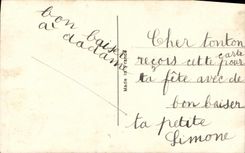 bon baiser
a dadame
MADE IN FRANCE
Cher tonton
reçois cette carte pour
ta fête avec de
bon baiser
ta petite
Simone